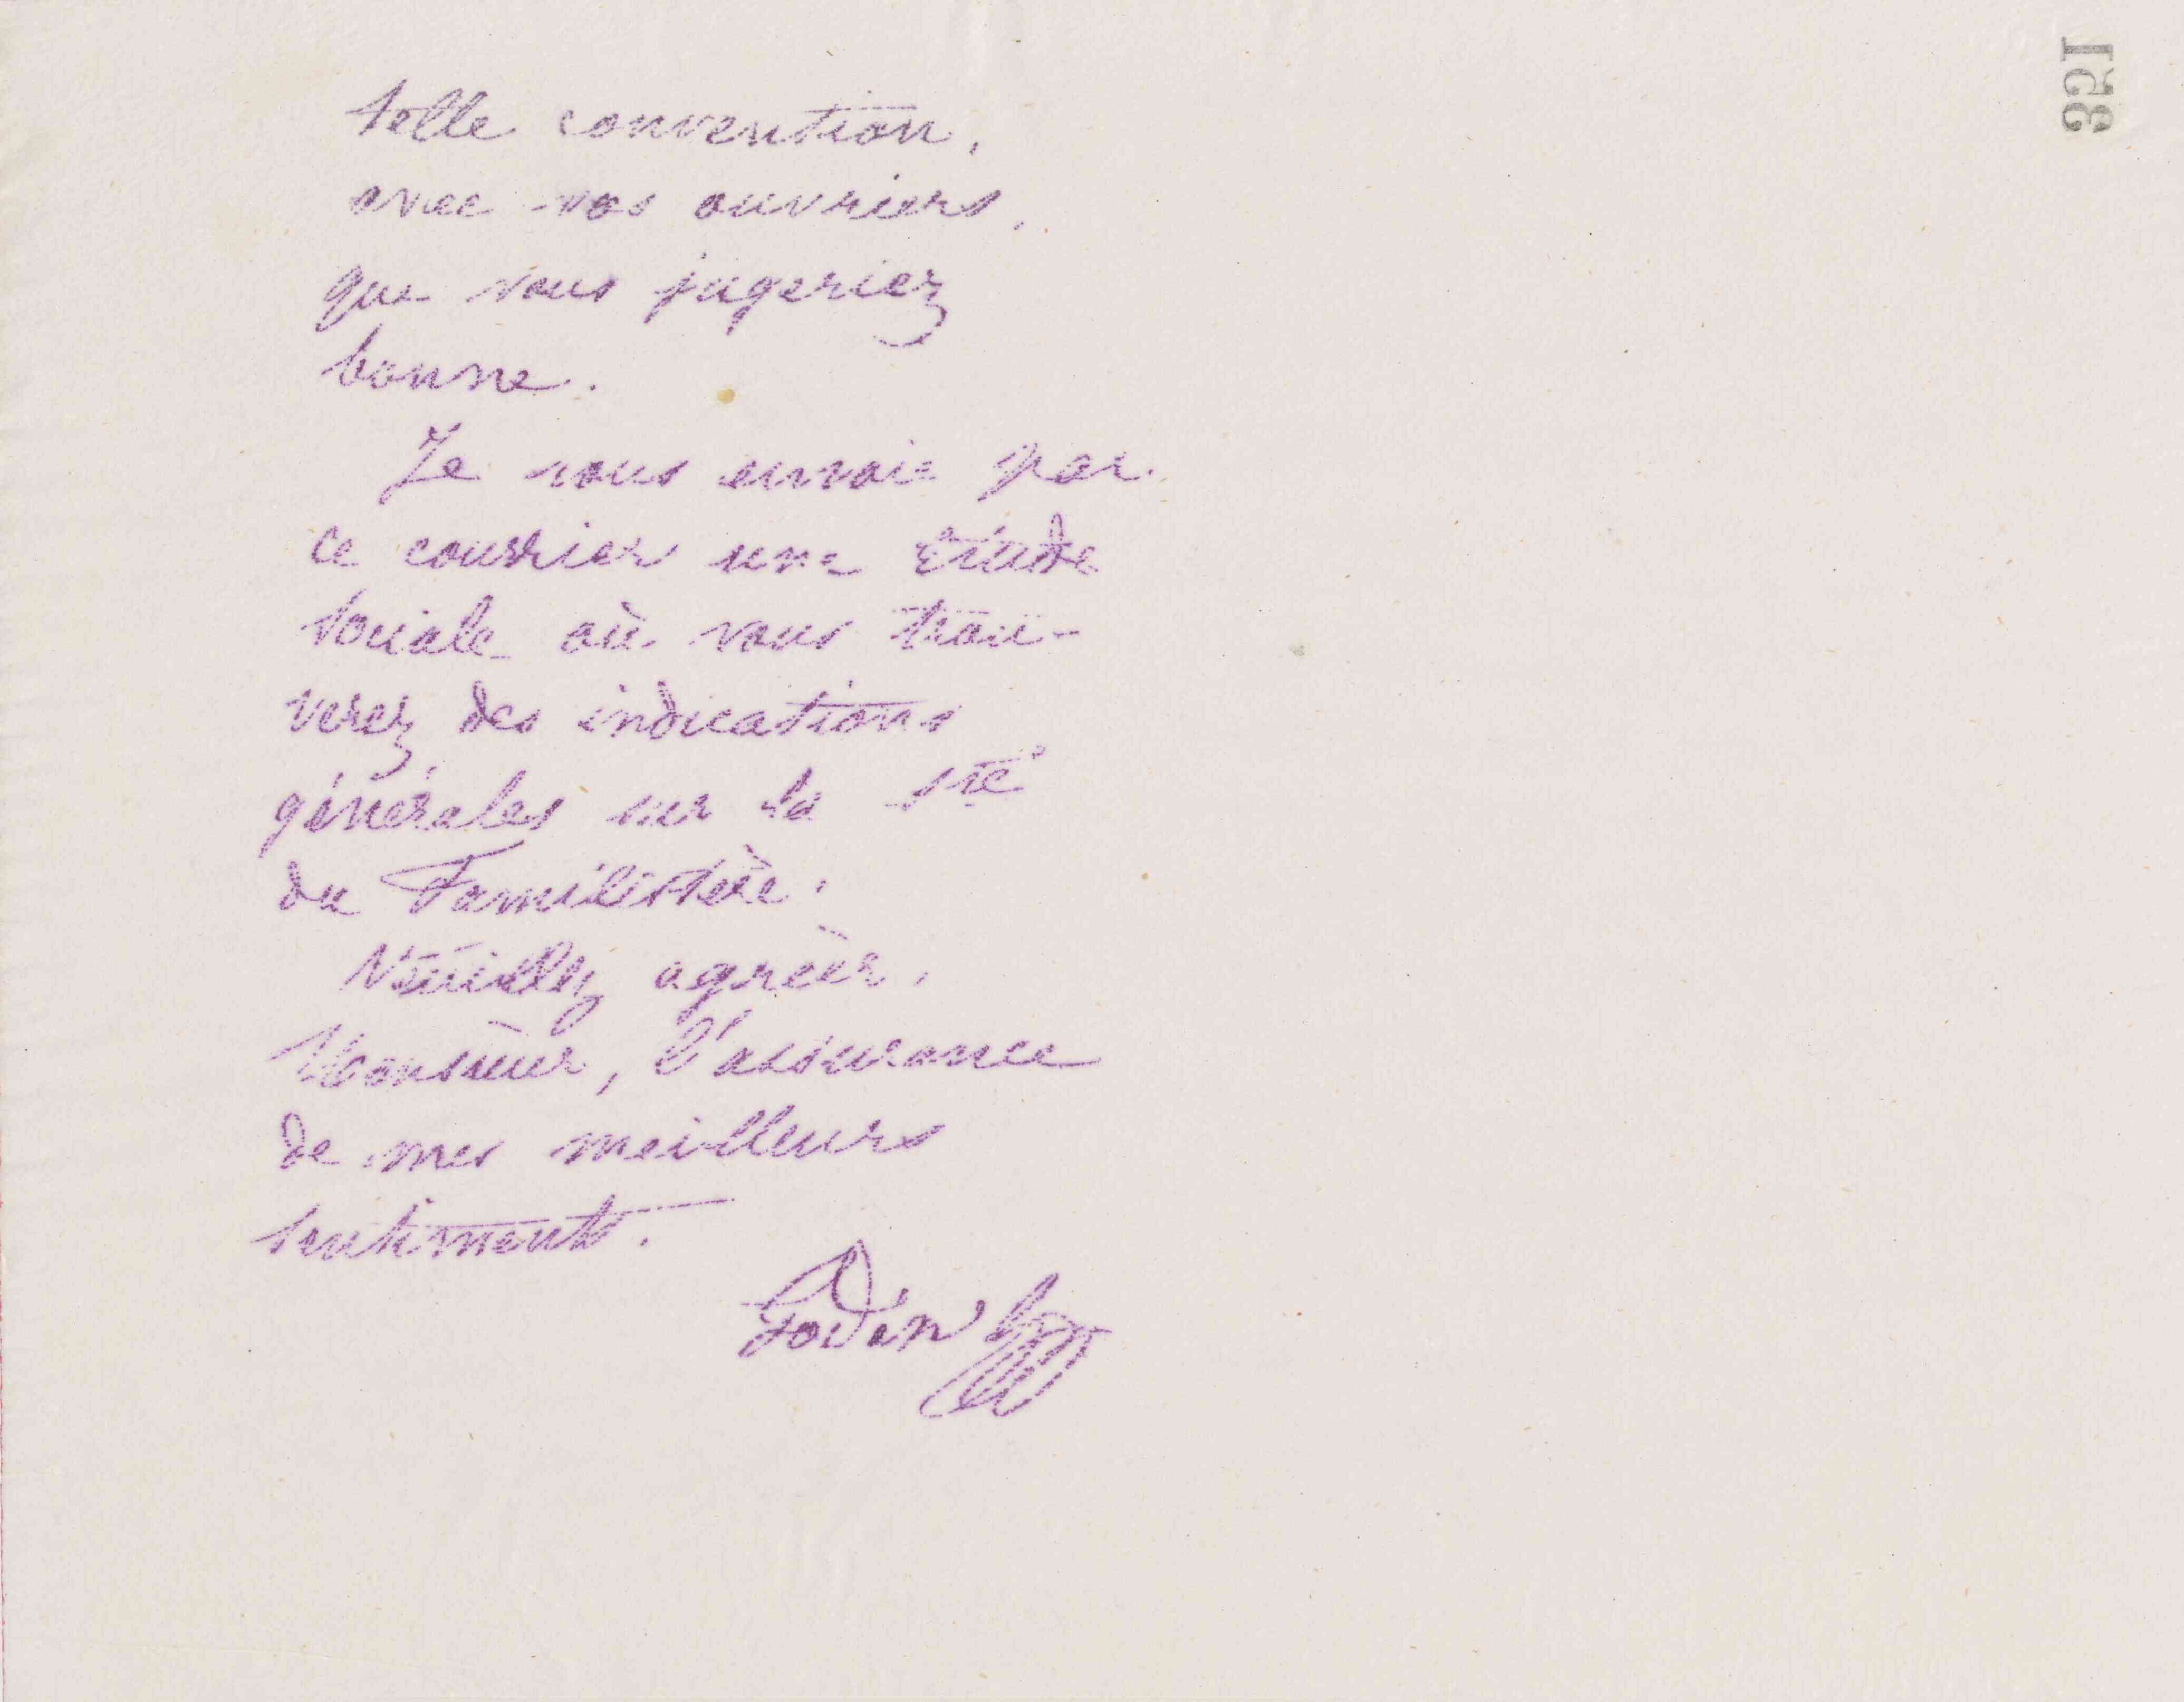 351
telle convention,
avec vos ouvriers,
que vous jugeriez
bonne.
Je vous envoie par
ce courrier une Étude
sociale où vous trou-
verez des indications
générales sur la Sté
du Familistère.
Veuillez agréer,
Monsieur, l'assurance
de mes meilleurs
sentiments.
Godin